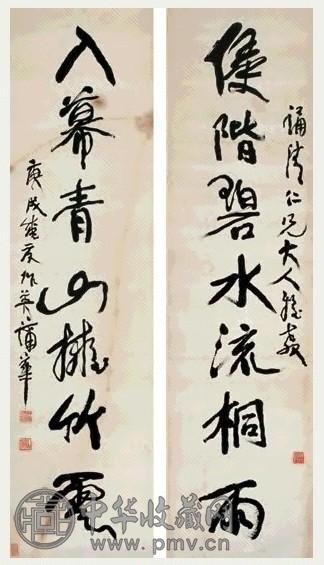 誦清仁兄大人雅教
侵階碧水流桐雨
入幕青山擁竹雲
庚戌夏作英蒲華
中华收藏网
www.pmv.cn